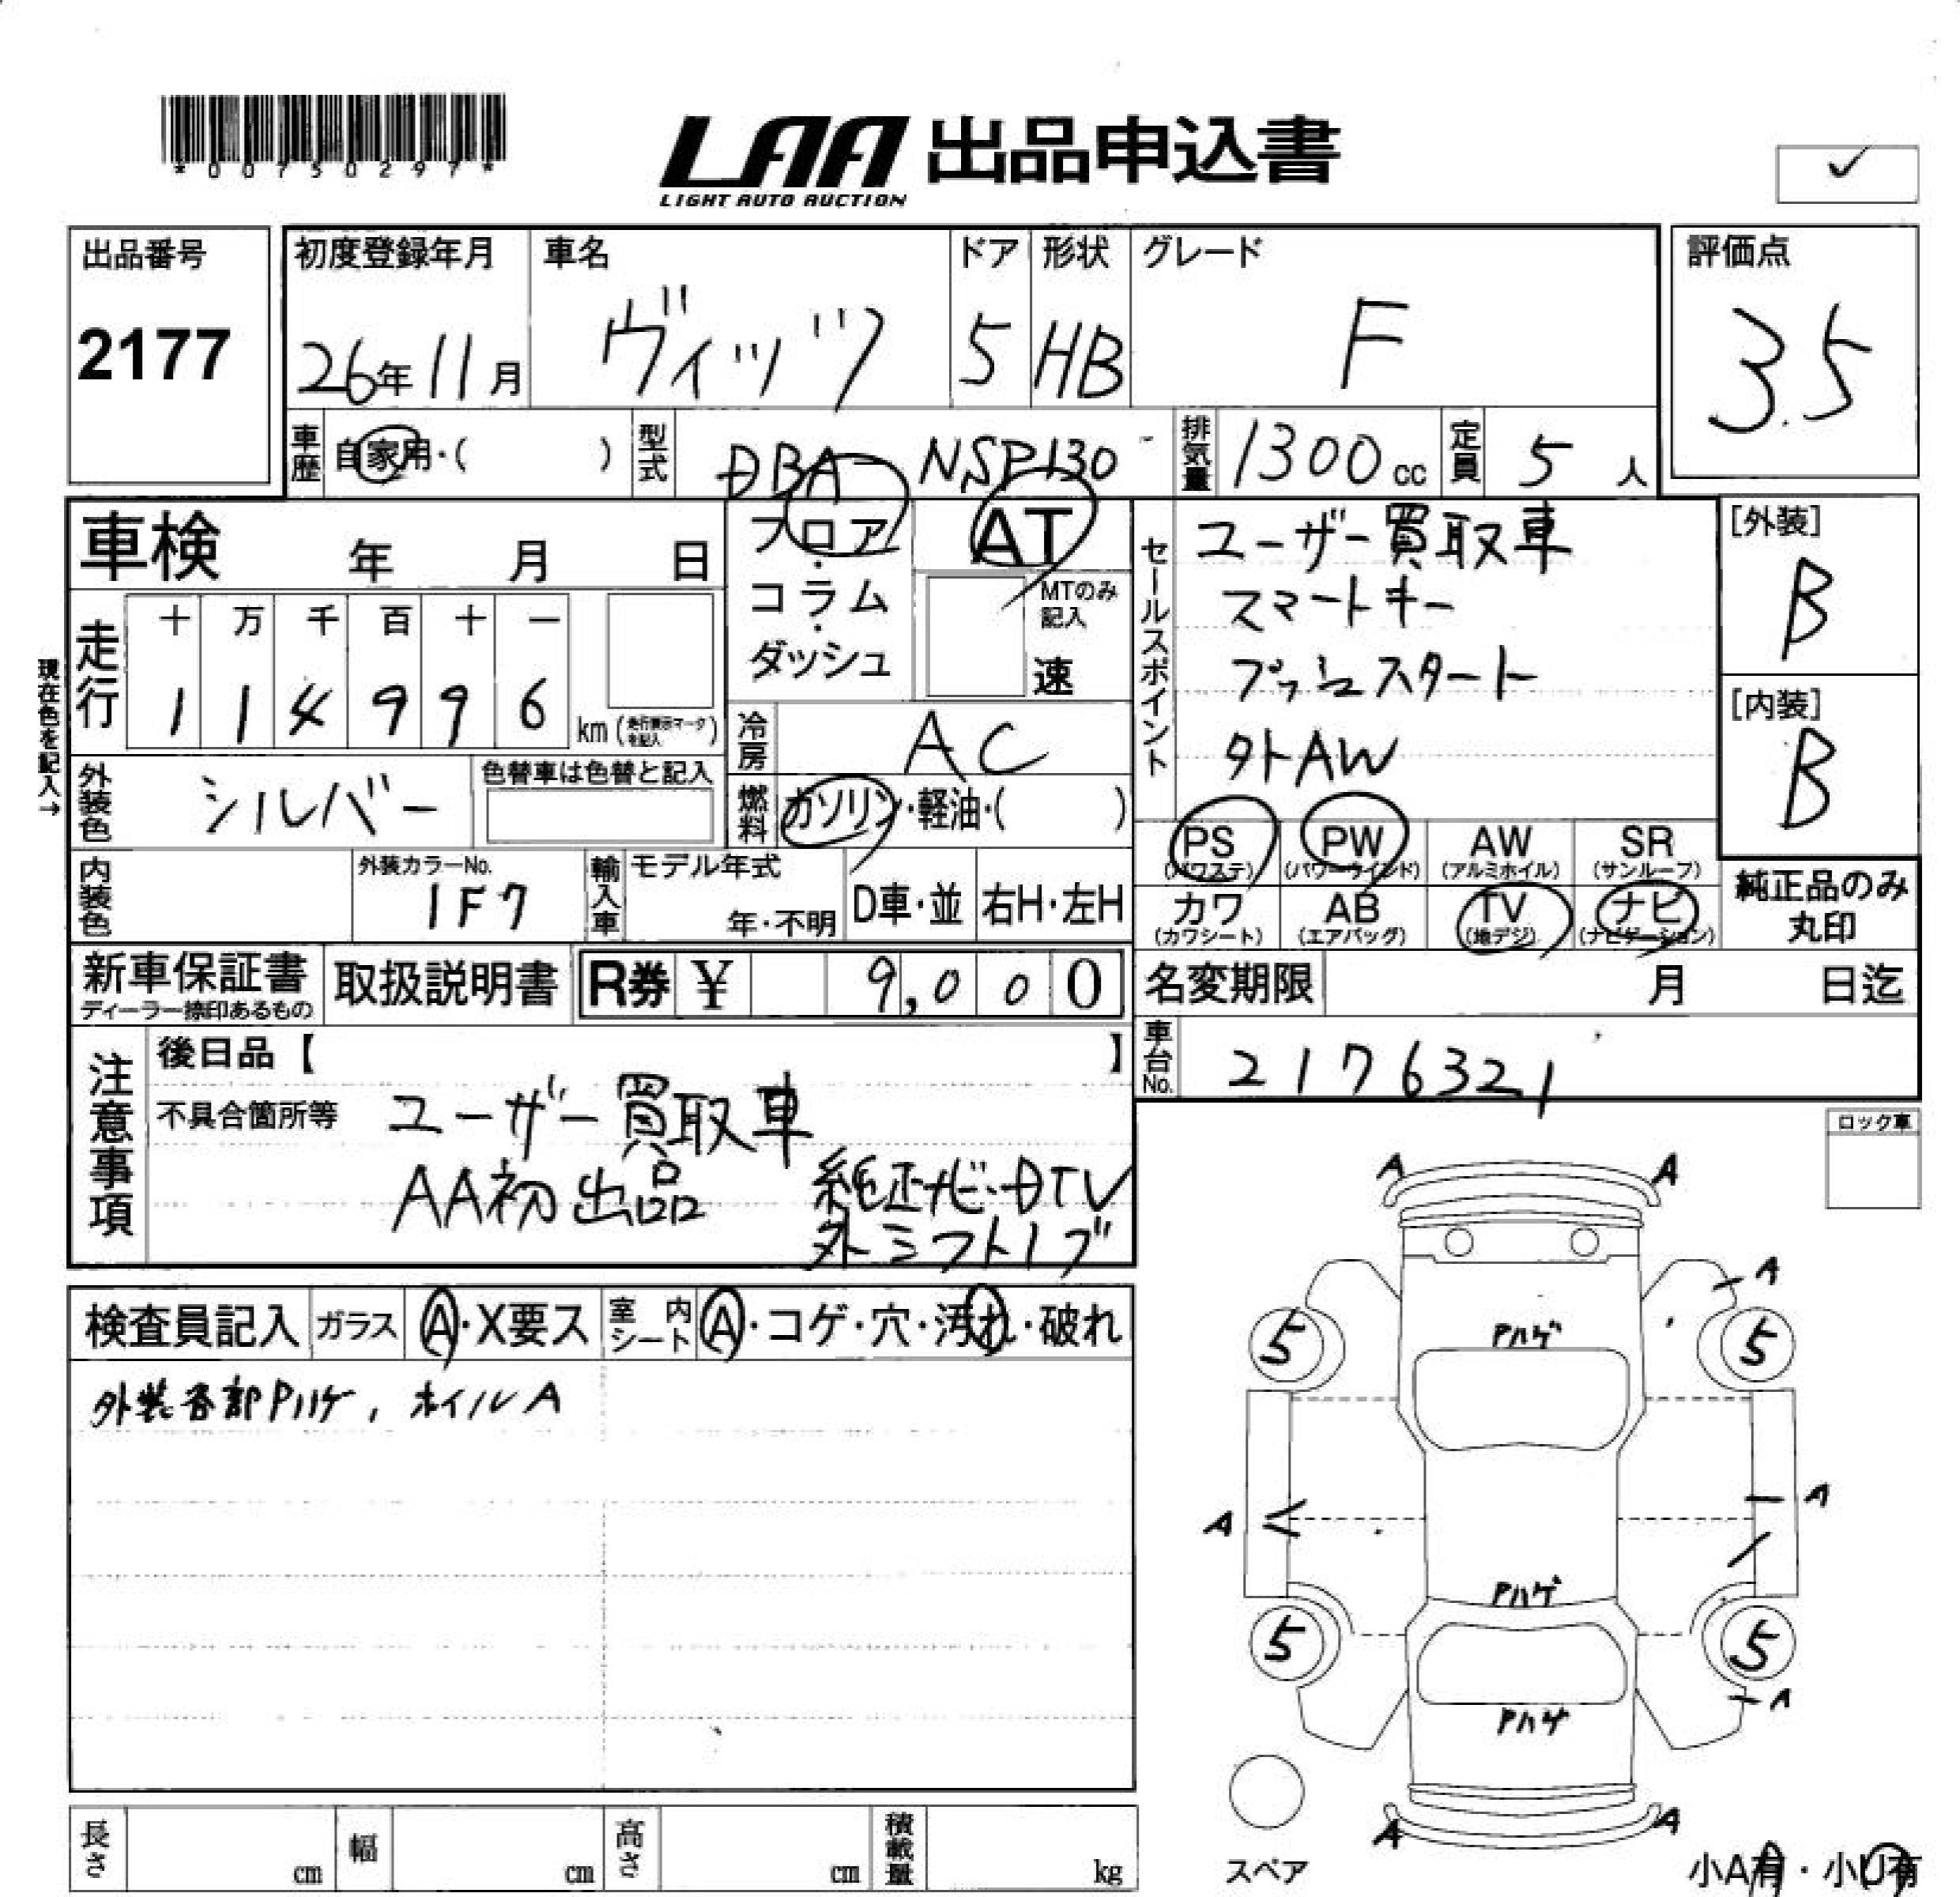 *00750297*
LAA 出品申込書
LIGHT AUTO AUCTION
✓
出品番号
2177
初度登録年月
26年11月
車名
ヴィッツ
ドア
5
形状
HB
グレード
F
評価点
3.5
車歴
自家用・( )
型式
DBA-NSP130
排気量
1300cc
定員
5人
車検 年 月 日
フロア・コラム・ダッシュ
AT
MTのみ記入
速
セールスポイント
ユーザー買取車
スマートキー
プッシュスタート
外AW
[外装]
B
[内装]
B
現在色を記入→
走行
十 万 千 百 十 一
1 1 4 9 9 6
km(走行表示マークを記入)
冷房
AC
外装色
シルバー
色替車は色替と記入
燃料
ガソリン・軽油・( )
PS
(パワステ)
PW
(パワーウインド)
AW
(アルミホイル)
SR
(サンルーフ)
カワ
(カワシート)
AB
(エアバッグ)
TV
(地デジ)
ナビ
(ナビゲーション)
純正品のみ
丸印
内装色
外装カラーNo.
1F7
輸入車
モデル年式
年・不明
D車・並
右H・左H
新車保証書
ディーラー捺印あるもの
取扱説明書
R券 ¥ 9,000
名変期限 月 日迄
車台No.
2176321
注意事項
後日品【 】
不具合箇所等
ユーザー買取車
AA初出品
純正ナビ・DTV
外シフトノブ
ロック車
検査員記入
ガラス
A・X要ス
室内シート
A・コゲ・穴・汚れ・破れ
外装各部Pハゲ, ホイルA
A A
A
Pハゲ
5 5
A
A
Pハゲ
5 5
A
Pハゲ
A A
スペア
小A有・小U有
長さ cm
幅 cm
高さ cm
積載量 kg